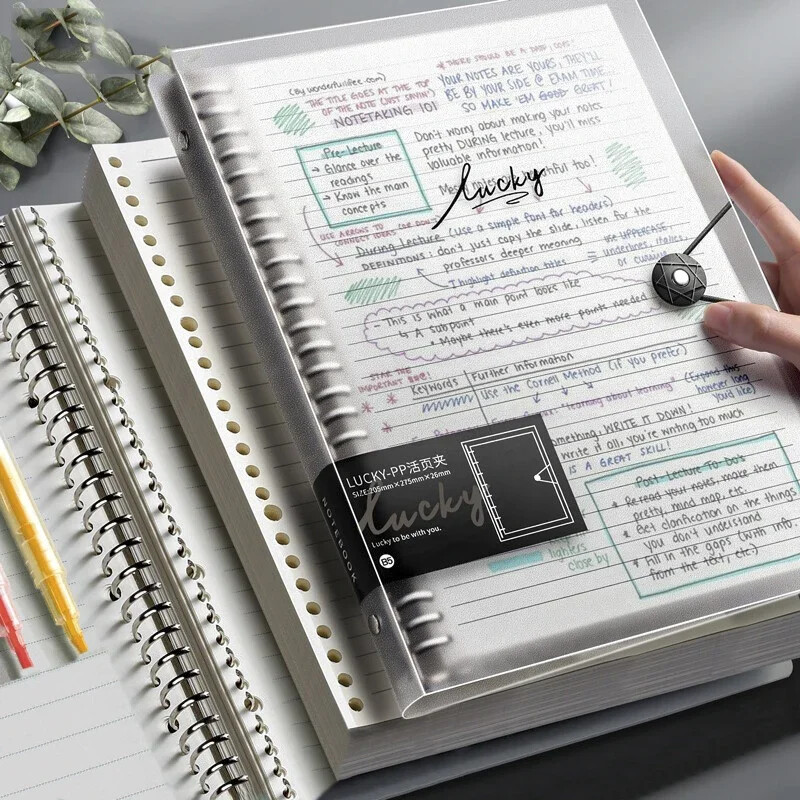 (By wonderfullifee.com)
THE TITLE GOES AT THE TOP
OF THE NOTE (JUST SAYIN')
NOTETAKING 101
* THERE SHOULD BE A
YOUR NOTES ARE YOURS, THEY'LL
BE BY YOUR SIDE @ EXAM TIME
SO MAKE 'EM GOOD GREAT!
Pre-Lecture
→ Glance over the
readings
→ Know the main
concepts
Don't worry about making your notes
pretty DURING lecture, you'll miss
valuable information!
too!
lucky
USE ARROWS TO
CONNECT IDEAS
During Lecture (use a simple font for headers)
DEFINITIONS: don't just copy the slide, listen for the
professors deeper meaning
↑ highlight definition titles
= use UPPERCASE,
underlines, italics,
or cursive
- This is what a main point looks like
↳ A subpoint
* Maybe there's even more points needed
IMPORTANT
Keywords
Further Information
Use the Cornell Method (if you prefer)
"learning about learning"
(Expand this
however long
you'd like)
: WRITE IT DOWN!
write it all, you're writing too much
IS A GREAT SKILL!
Post Lecture To Do's
* Reread your notes, make them
pretty, mind map, etc.
* Get clarification on the things
you don't understand
* Fill in the gaps (with info.
from the text, etc.)
close by
LUCKY-PP活页夹
SIZE:205mm×275mm×26mm
lucky
Lucky to be with you.
B5
NOTEBOOK